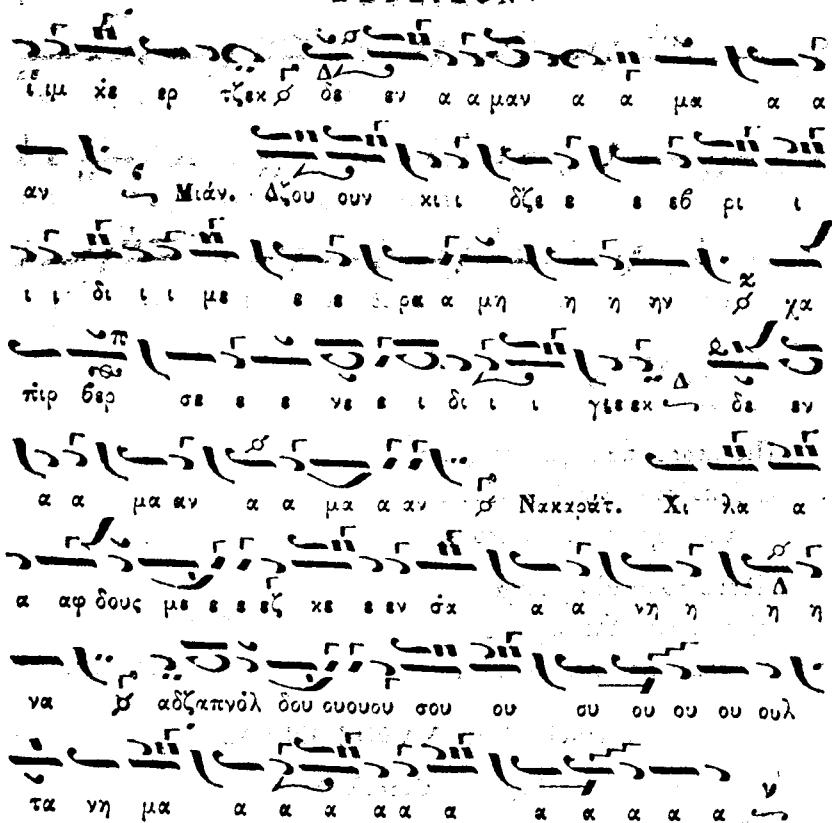 ι ιμ κε ερ τζεκ δε εν α α μαν α α μα α α
αν Μιάν. Δζου ουν κι ι δζε ε ε εβ ρι ι
ι ι δι ι ι με ε ε ρα α μη η η ην χα
πιρ βερ σε ε ε νε ε ι δι ι ι γιεεκ δε εν
α α μα αν α α μα α αν Νακαράτ. Χι λα α
α αφ δους με ε ε εζ κε ε εν σα α α νη η η η
να αδζαπνόλ δου ουουου σου ου συ ου ου ου ουλ
τα νη μα α α α α α α α α α α α